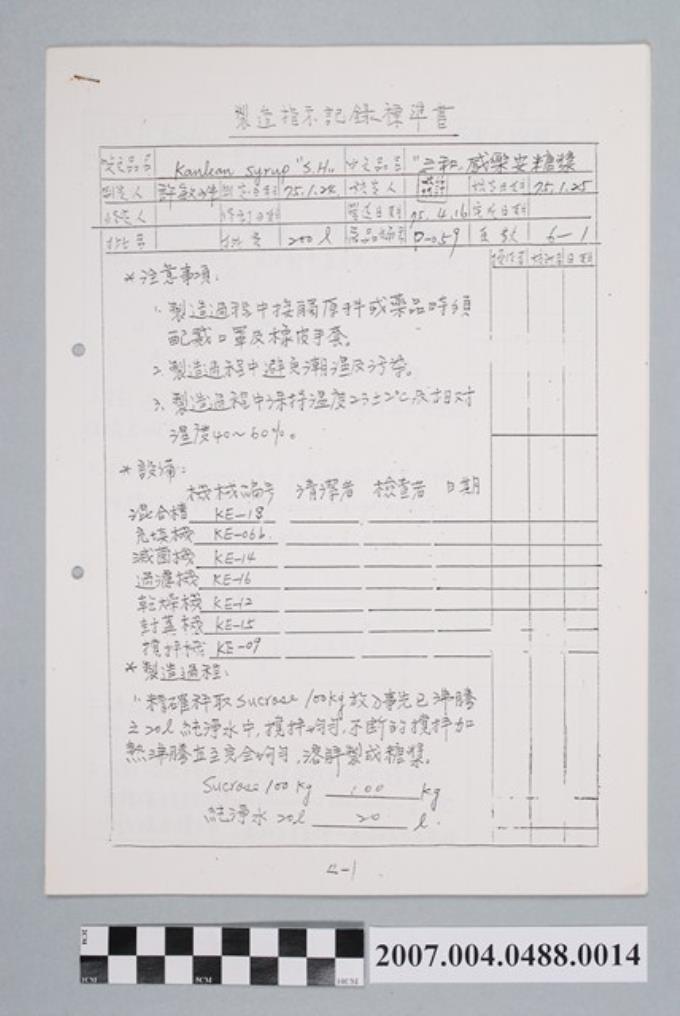 製造指示記錄標準書
英文品名 Kanlean Syrup "S.H." 中文品名 "三和"感樂安糖漿
制定人 許敏 制定日期 75.1.24 核定人 核定日期 75.1.25
修定人 修訂日期 製造日期 75.4.16 完成日期
批號 批量 200 l 產品編號 D-059 頁數 6-1
操作者 核對者 日期
*注意事項:
1. 製造過程中接觸原料或藥品時須
配戴口罩及橡皮手套。
2. 製造過程中避免潮濕及污染。
3. 製造過程中保持溫度23±2℃及相對
濕度40~60%。
*設備:
機械編號 清潔者 檢查者 日期
混合槽 KE-18
充填機 KE-06b
滅菌機 KE-14
過濾機 KE-16
乾燥機 KE-12
封蓋機 KE-15
攪拌機 KE-09
*製造過程:
1. 精確秤取Sucrose 100kg放入事先已沸騰
之20l純淨水中,攪拌均勻,不斷的攪拌加
熱沸騰並至完全均勻,溶解製成糖漿。
Sucrose 100 kg 100 kg
純淨水 20l 20 l.
6-1
2007.004.0488.0014
1CM 5CM 10CM